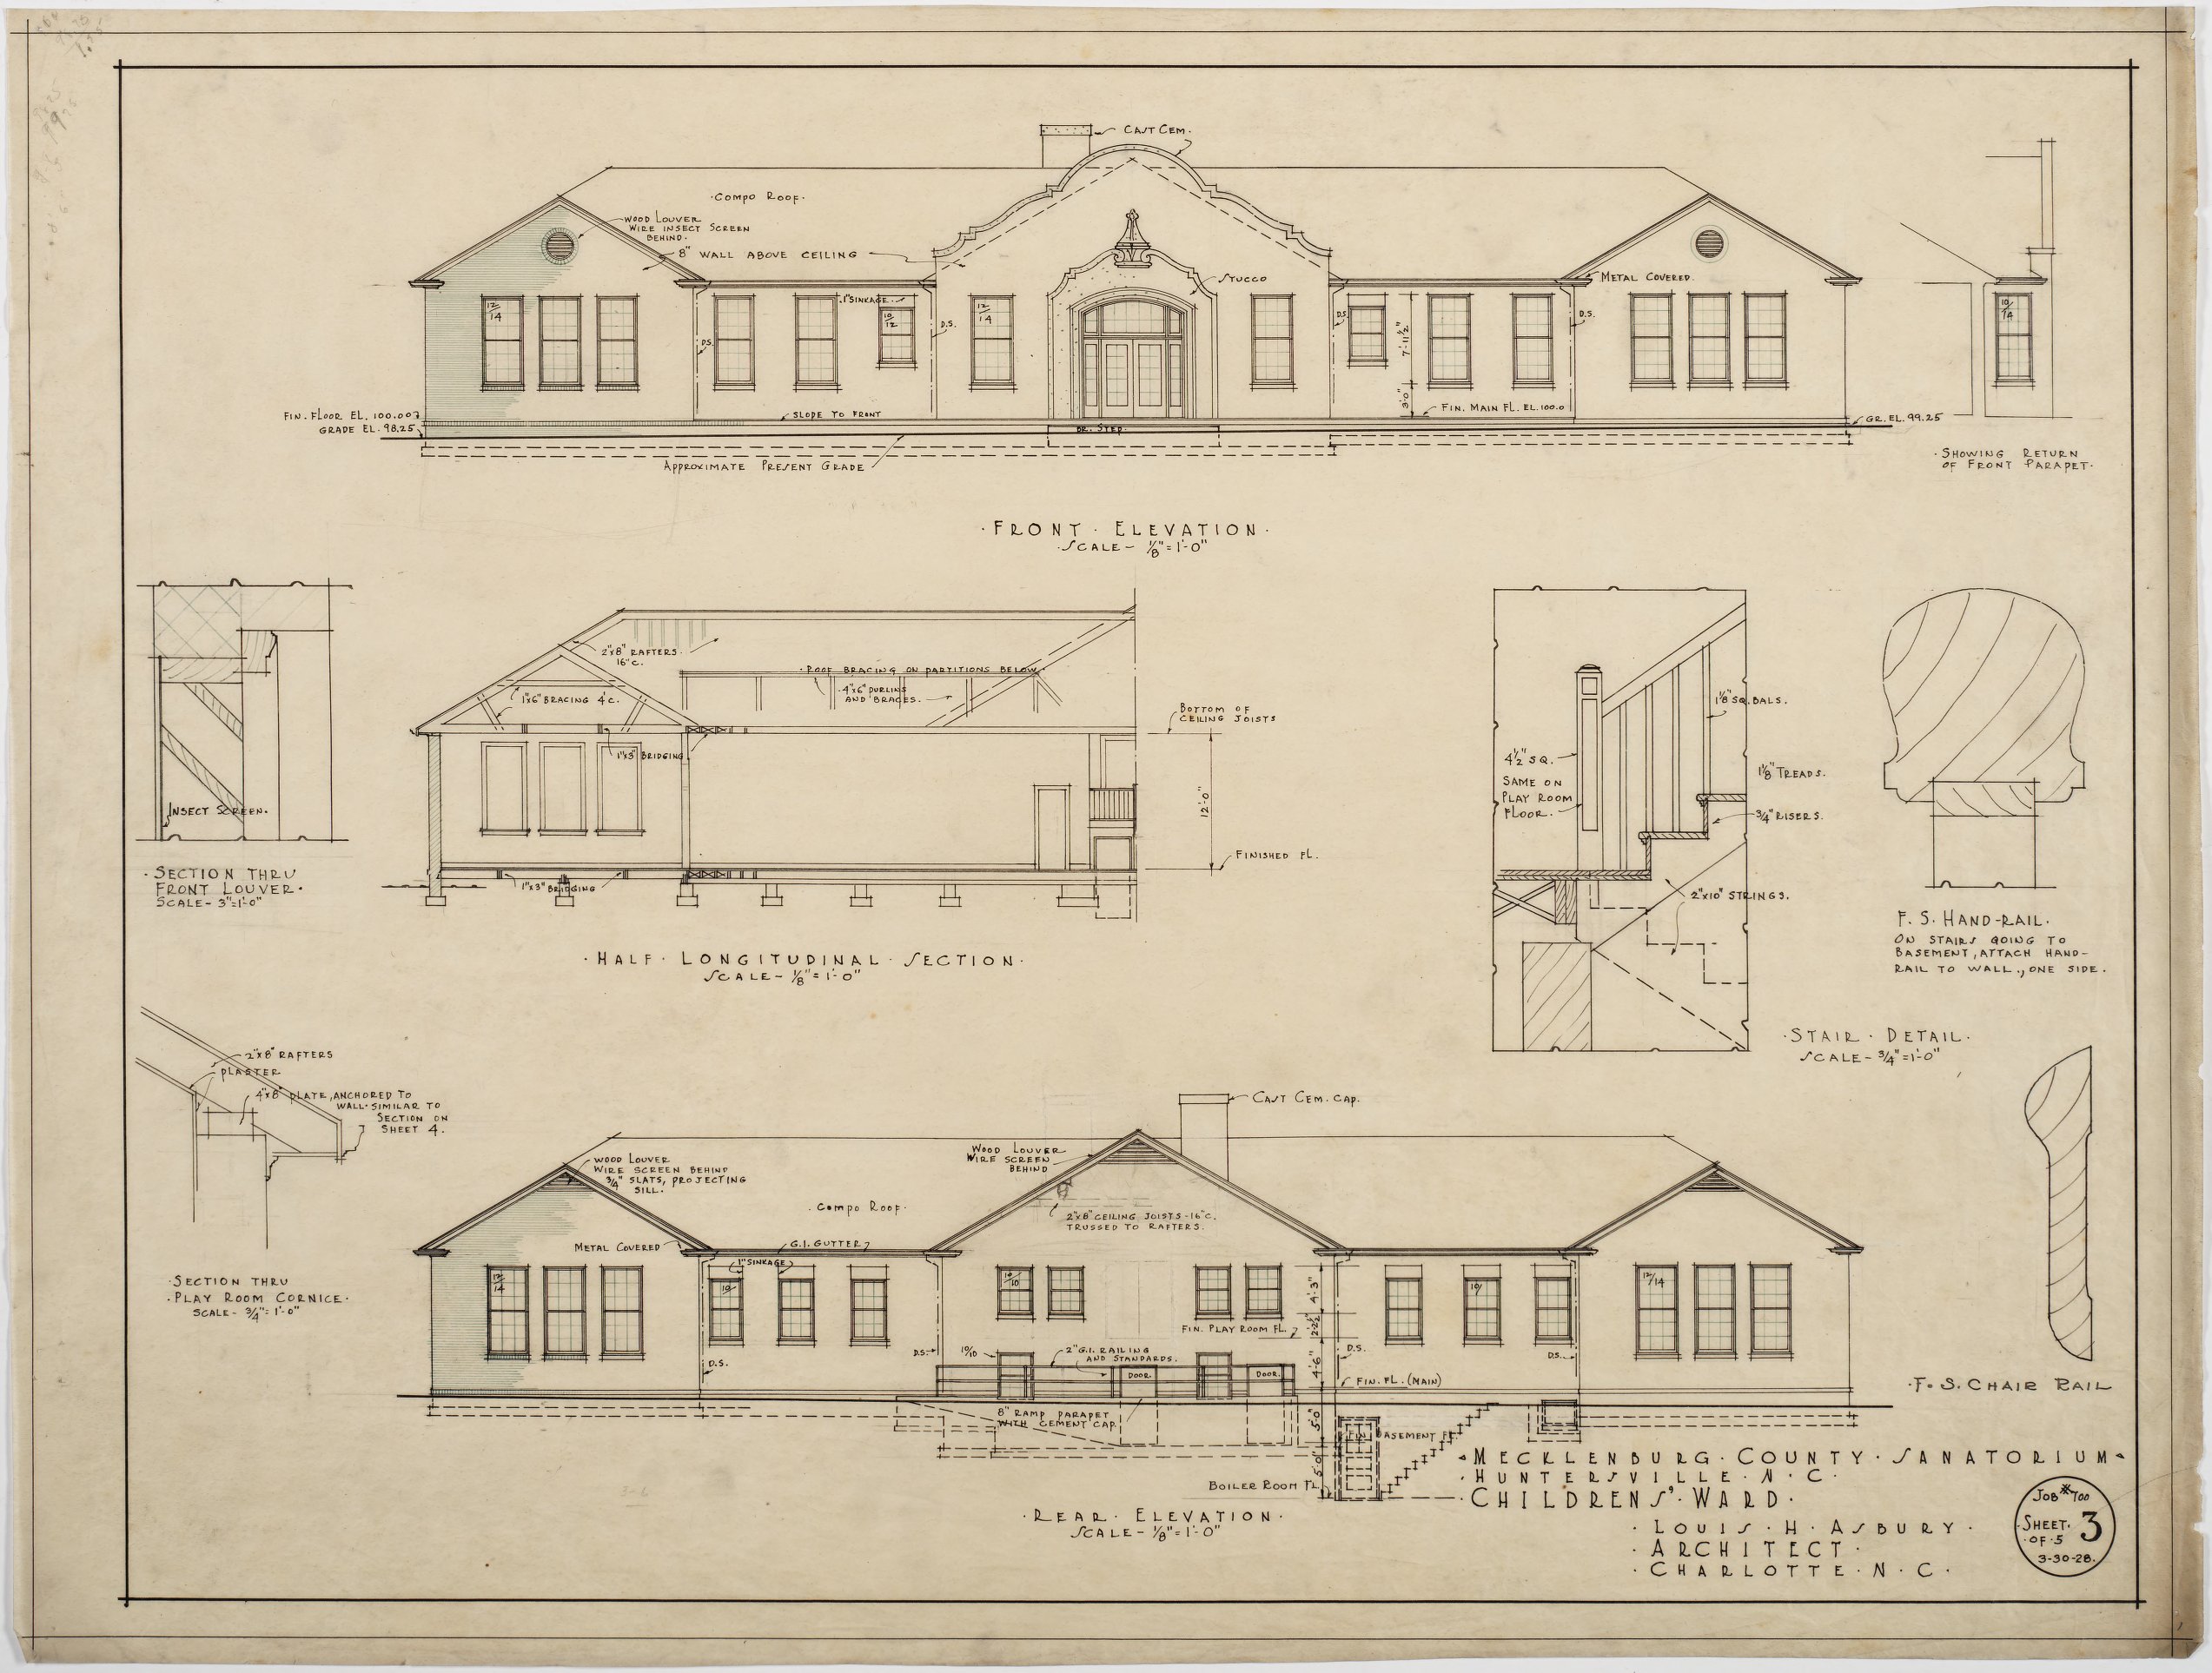 CAST CEM.
·COMPO ROOF·
WOOD LOUVER
WIRE INSECT SCREEN
BEHIND·
8" WALL ABOVE CEILING
STUCCO
METAL COVERED.
12/14
1" SINKAGE·
10/12
12/14
D.S.
D.S.
D.S.
D.S.
7'-11½"
3'-0"
10/14
FIN. FLOOR EL. 100.00
GRADE EL. 98.25
SLOPE TO FRONT
FIN. MAIN FL. EL. 100.0
GR. EL. 99.25
BR. STEP.
APPROXIMATE PRESENT GRADE
·SHOWING RETURN
OF FRONT PARAPET·
·FRONT·ELEVATION·
·SCALE- ⅛"=1'-0"
INSECT SCREEN.
·SECTION THRU
FRONT LOUVER·
SCALE- 3"=1'-0"
2"x8" RAFTERS·
16" C.
·ROOF BRACING ON PARTITIONS BELOW
·4"x6" PURLINS
AND BRACES.
1"x6" BRACING 4' C.
1"x3" BRIDGING
BOTTOM OF
CEILING JOISTS
12'-0"
FINISHED FL.
1"x3" BRIDGING
·HALF·LONGITUDINAL·SECTION·
SCALE- ⅛"=1'-0"
1⅛" SQ. BALS.
4½" SQ.
SAME ON
PLAY ROOM
FLOOR.
1⅛" TREADS.
¾" RISERS.
2"x10" STRINGS.
·STAIR·DETAIL·
SCALE- ¾"=1'-0"
F. S. HAND-RAIL.
ON STAIRS GOING TO
BASEMENT, ATTACH HAND-
RAIL TO WALL., ONE SIDE.
2"x8" RAFTERS
PLASTER
4"x8" PLATE, ANCHORED TO
WALL·SIMILAR TO
SECTION ON
SHEET 4.
·SECTION THRU
·PLAY ROOM CORNICE·
SCALE- ¾"=1'-0"
CAST CEM. CAP.
WOOD LOUVER
WIRE SCREEN BEHIND
¾" SLATS, PROJECTING
SILL.
WOOD LOUVER
WIRE SCREEN
BEHIND
·COMPO ROOF·
2"x8" CEILING JOISTS-16" C.
TRUSSED TO RAFTERS.
METAL COVERED
G.I. GUTTER
1" SINKAGE
12/14
10/
10/10
10/
12/14
4'-3"
2'-2½"
4'-6"
5'-0"
5'-0"
FIN. PLAY ROOM FL.
D.S.
D.S.
10/10
2" G.I. RAILING
AND STANDARDS.
DOOR
DOOR
D.S.
D.S.
FIN. FL. (MAIN)
8" RAMP PARAPET
WITH CEMENT CAP.
FIN. BASEMENT FL.
BOILER ROOM FL.
·REAR·ELEVATION·
SCALE- ⅛"=1'-0"
·F. S. CHAIR RAIL
·MECKLENBURG·COUNTY·SANATORIUM·
·HUNTERSVILLE·N·C·
·CHILDRENS'·WARD·
·LOUIS·H·ASBURY·
·ARCHITECT·
·CHARLOTTE·N·C·
JOB #700
SHEET· 3
·OF·5
3-30-28.